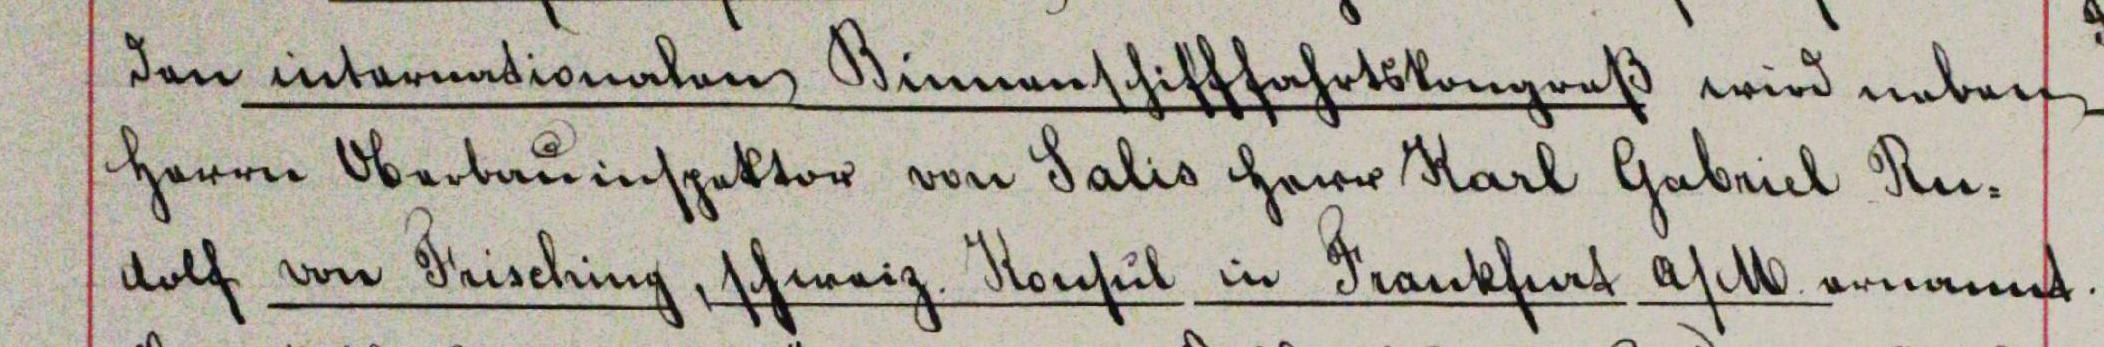 den internationalen Binnenschifffahrtskongreß wird neben
Herrn Oberbauinspektor von Salis Herr Karl Gabriel Ru-
dolf von Frisching, schweiz. Konsul in Frankfurt a/M. ernannt.